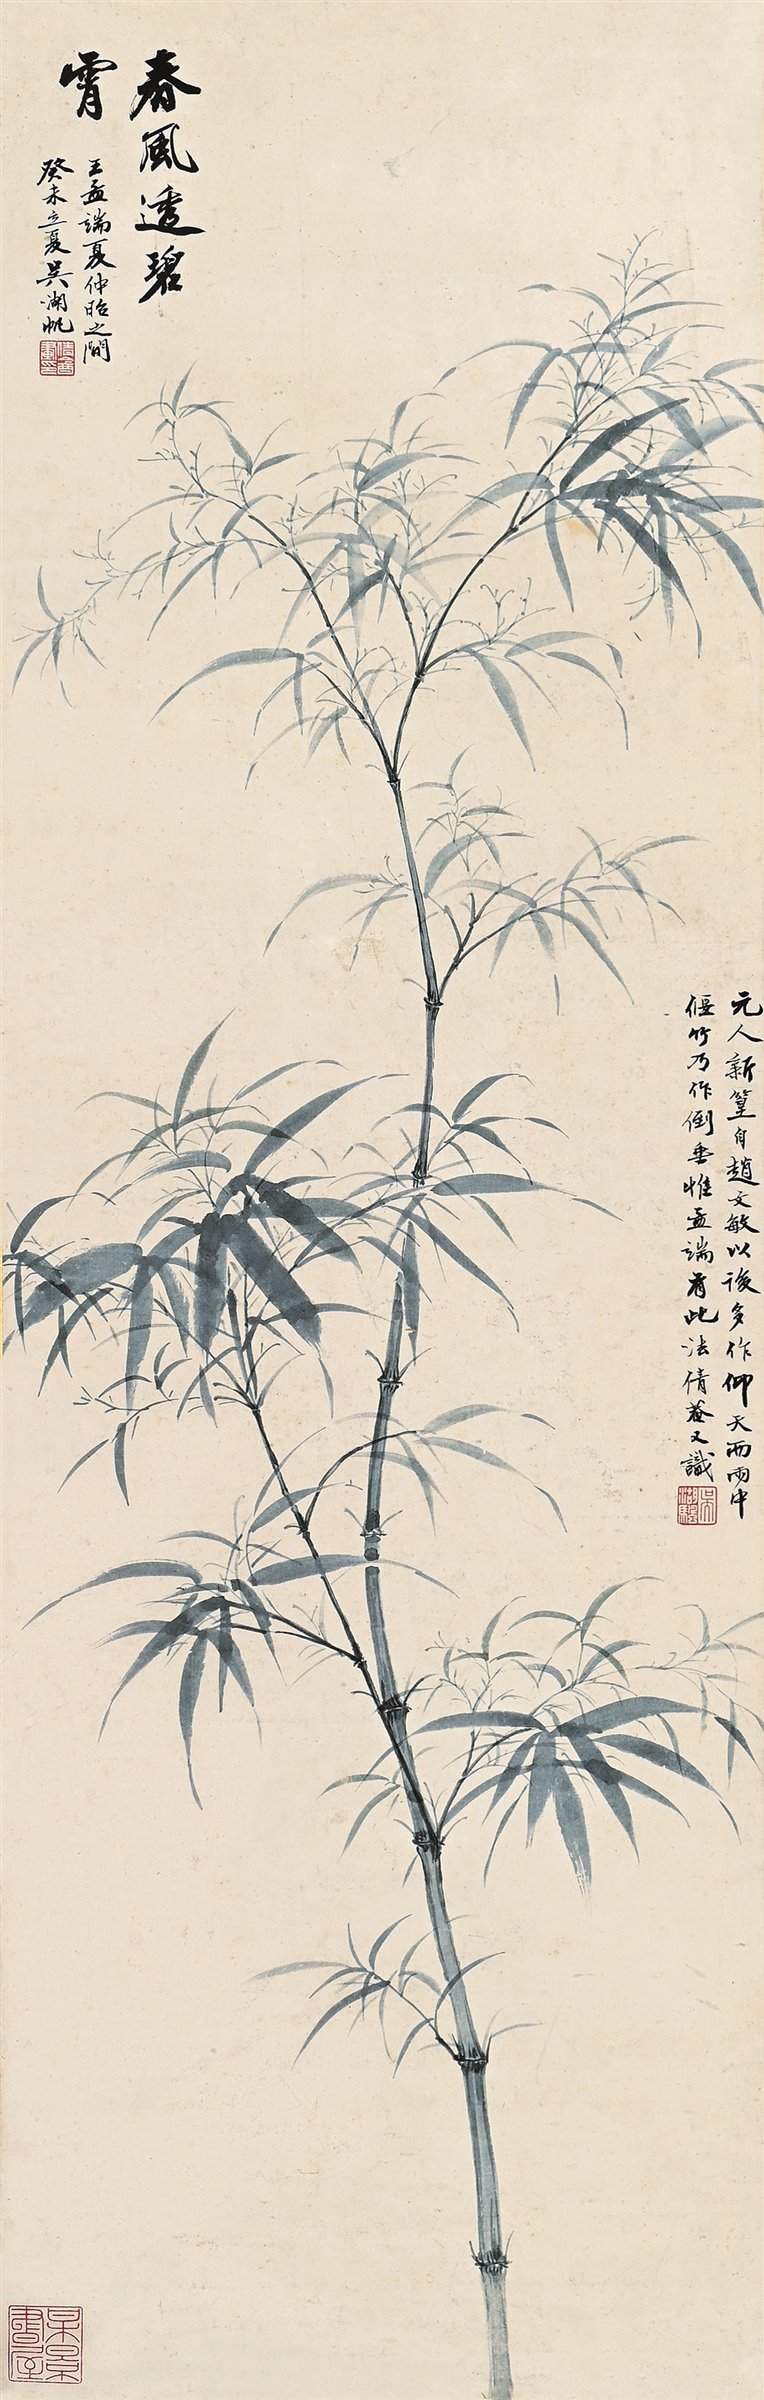 春風透碧
霄
王孟端夏仲昭之間
癸未立夏吳湖帆
倩盦畫印
元人新篁自趙文敏以後多作仰天而雨中
偃竹乃作倒垂惟孟端有此法倩菴又識
吳湖颿
梅景書屋